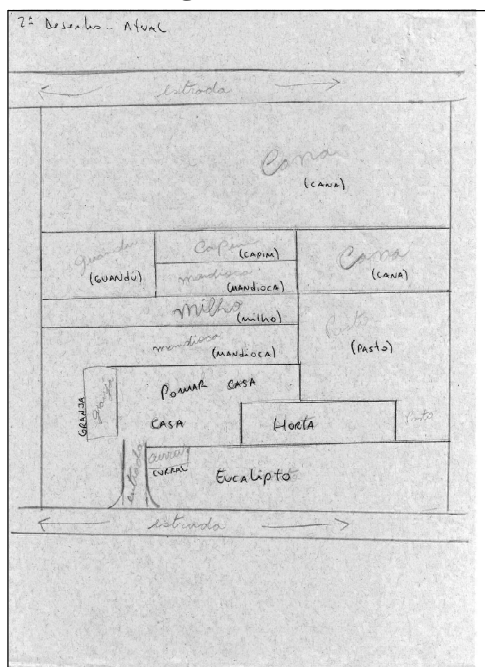 2º Desenho.. Atual
estrada
Cana
(CANA)
Guandu
(GUANDÚ)
Capim
(CAPIM)
mandioca
(MANDIOCA)
Cana
(CANA)
Milho
(milho)
mandioca
(MANDIOCA)
Pasto
(PASTO)
GRANJA
Granja
POMAR CASA
CASA
HORTA
Pasto
estrada
curral
CURRAL
EUCALIPTO
estrada